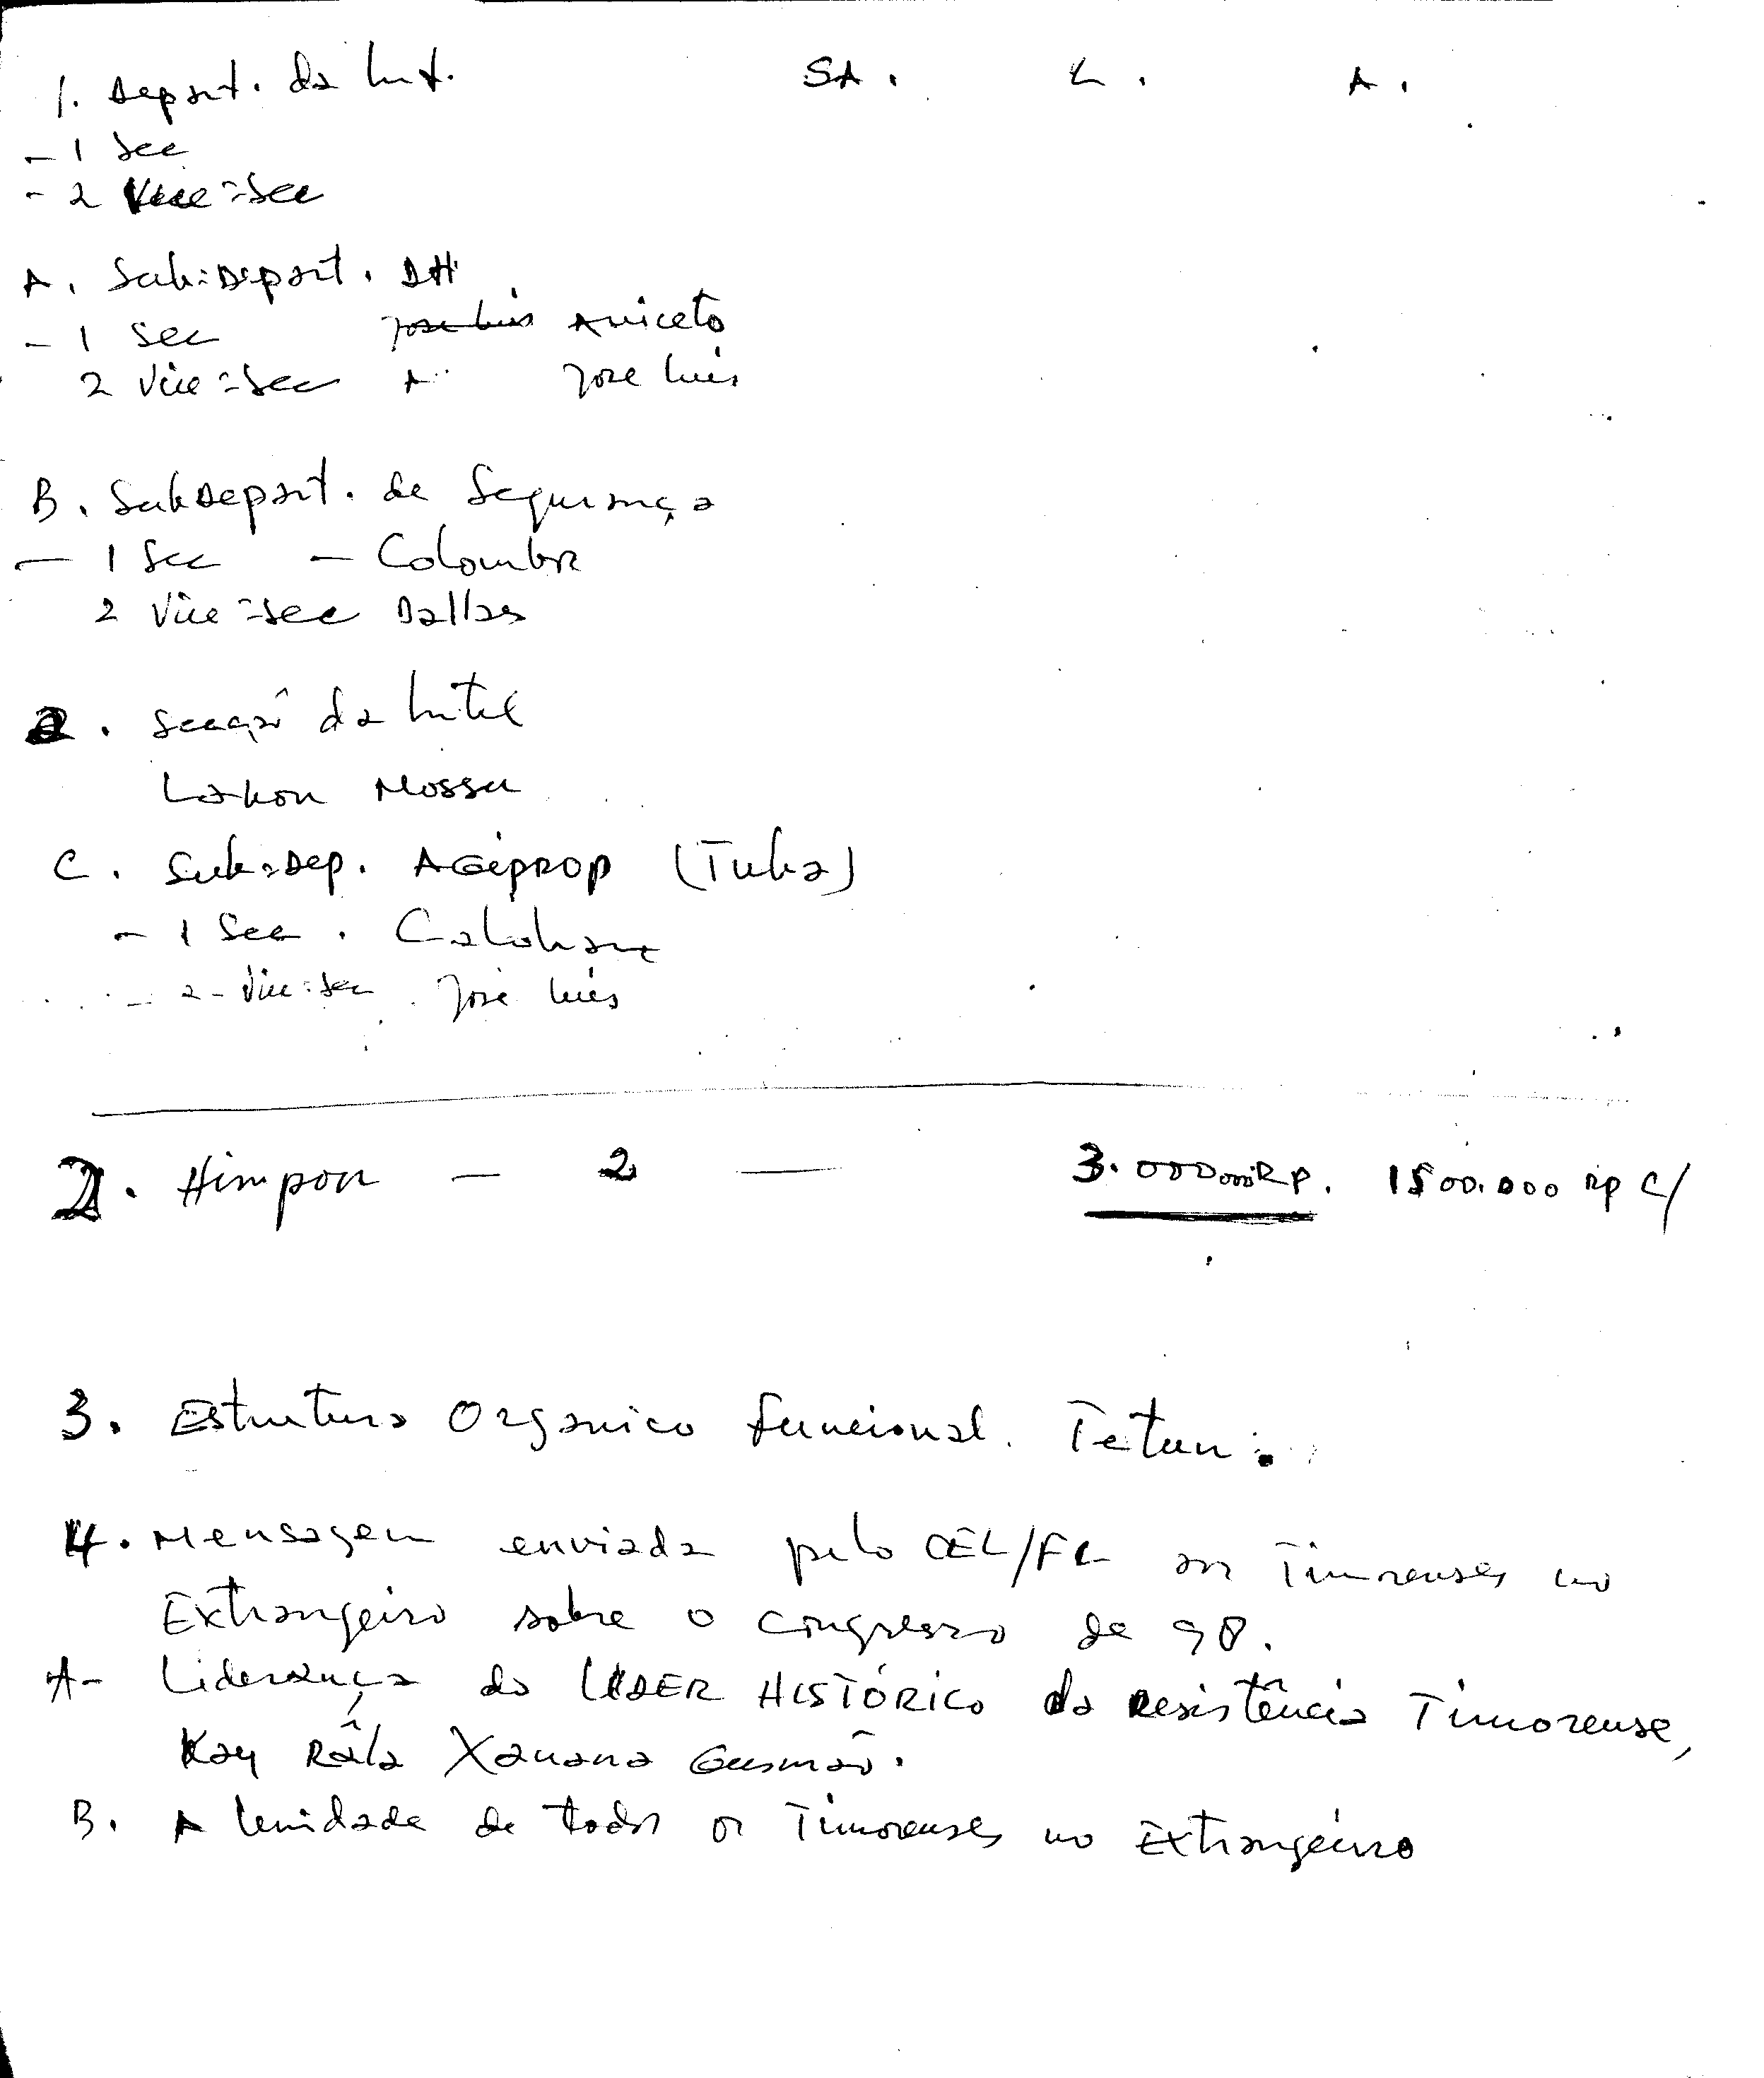 1. Depart. da Int. SA. L. A.
- 1 Sec
- 2 Vice=Sec
A. Sub=Depart. DH
- 1 Sec José Luis Aniceto
2 Vice=Sec A José Luis
B. SubDepart. de Segurança
- 1 Sec - Colombo
2 Vice=Sec Dallas
2. Secção da Intel
Lakon Mossu
C. Sub=Dep. AGIPROP (Tuba)
- 1 Sec.
- 2 - Vice=Sec. José Luis
2. Himpon - 2 — 3.000.000 Rp. 1500.000 Rp c/
3. Estrutura Organico funcional. Tetun.
4. Mensagem enviada pelo CEL/FL aos Timorenses no
Extrangeiro sobre o congresso de 98.
A- Liderança do LIDER HISTÓRICO da Resistência Timorense,
Kay Râla Xanana Gusmão.
B. A Unidade de todos os Timorenses no Extrangeiro